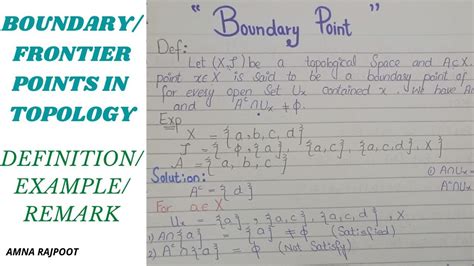 BOUNDARY/
FRONTIER
POINTS IN
TOPOLOGY
DEFINITION/
EXAMPLE/
REMARK
AMNA RAJPOOT
"Boundary Point"
Def:
Let (X,J) be a topological Space and A⊂X.
point x∈X is said to be a boundary point of
for every open Set Ux contained x, we have An
and A^c∩Ux ≠ ϕ.
Exp
X = {a,b,c,d}
J = {ϕ,{a}, {a,c}, {a,c,d},X}
A = {a, b, c}
Solution:
A^c = {d}
For a∈X
Ux = {a}, {a,c}, {a,c,d}, X
1) A∩{a} = {a} ≠ ϕ (Satisfied)
2) A^c∩{a} = ϕ (Not Satisfy)
1) A∩U
2) A^c